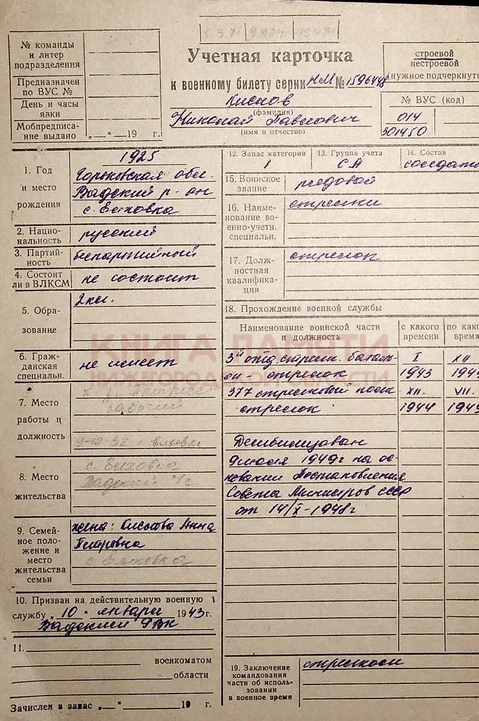 № команды
и литер
подразделения
Предназначен
по ВУС №
День и часы
явки
Мобпредписа-
ние выдано „ “ 19 г.
Учетная карточка
к военному билету серии НМ № 1596448
(фамилия)
Николай Павлович
(имя и отчество)
строевой
нестроевой
(нужное подчеркнуть)
№ ВУС (код)
014
301450
1. Год
и место
рождения
1925
Горьковская обл.
Вадский р-он
2. Нацио-
нальность
русский
3. Партий-
ность
беспартийный
4. Состоит
ли в ВЛКСМ
не состоит
5. Обра-
зование
2 кл.
6. Граж-
данская
специальн.
не имеет
7. Место
работы и
должность
рабочий
8. Место
жительства
9. Семей-
ное поло-
жение и
место
жительства
семьи
жена: Анна
Петровна
10. Призван на действительную военную
службу „10“ января 1943 г.
Вадским РВК
11.
военкоматом
области
Зачислен в запас „ “ 19 г.
12. Запас категория
1
13. Группа учета
СА
14. Состав
солдаты
15. Воинское
звание
рядовой
16. Наиме-
нование во-
енно-учетн.
специальн.
стрелки
17. Долж-
ностная
квалифика-
ция
стрелок
18. Прохождение военной службы
Наименование воинской части
и должность
с какого
времени
по какое
времени
он - стрелок
I
1943
XII
377 стрелковый полк
стрелок
XII.
1944
VII.
Демобилизован
на ос-
новании Постановления
Совета Министров СССР
19. Заключение
командования
части об исполь-
зовании
в военное время
стрелком
КНИГА ПАМЯТИ
НИЖЕГОРОДСКОЙ ОБЛАСТИ